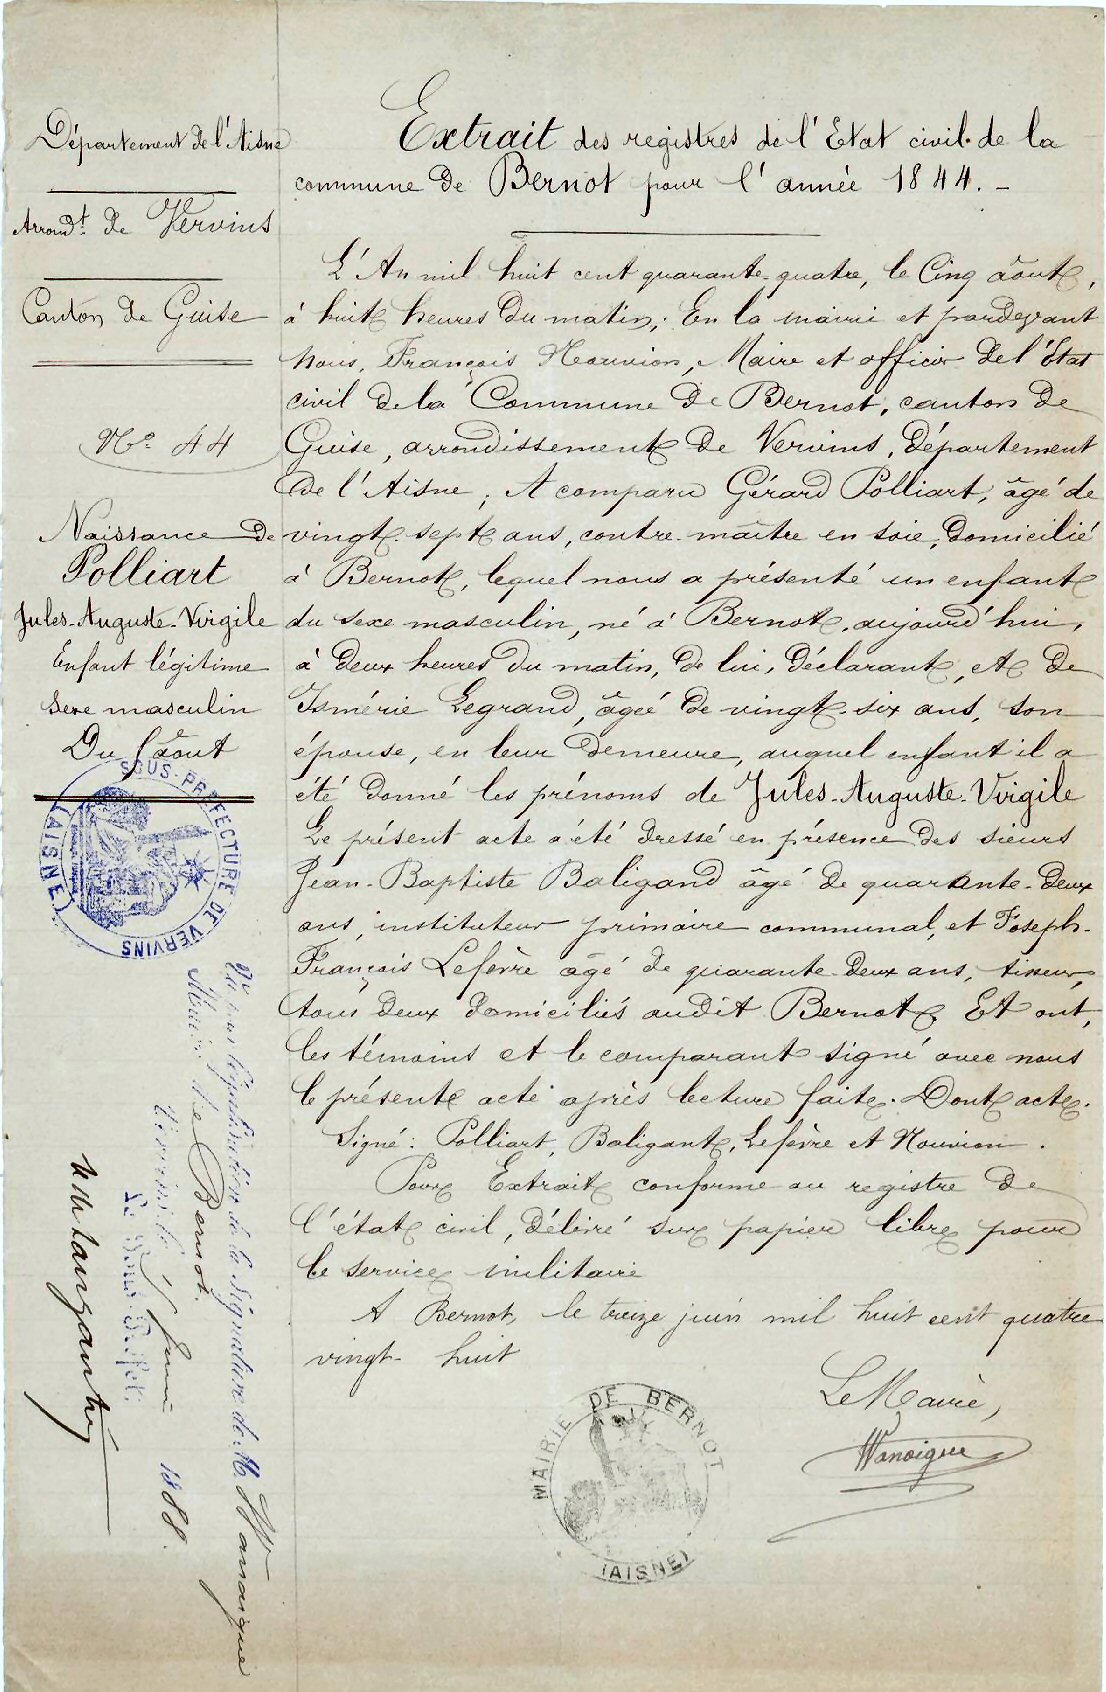 Département de l'Aisne
Arrond.t de Vervins
Canton de Guise
N.o 44
Naissance de
Polliart
Jules-Auguste-Virgile
Enfant légitime
Sexe masculin
Du 5 août
SOUS-PRÉFECTURE DE VERVINS
(AISNE)
Extrait des registres de l'Etat civil de la
commune de Bernot pour l'année 1844. -
L'An mil huit cent quarante-quatre, le Cinq août,
à huit heures du matin; En la mairie et pardevant
nous, François Nouvion, Maire et officier de l'Etat
civil de la Commune de Bernot, canton de
Guise, arrondissement de Vervins, Département
de l'Aisne; A comparu Gérard Polliart, âgé de
vingt-sept ans, contre-maître en soie, domicilié
à Bernot, lequel nous a présenté un enfant
du sexe masculin, né à Bernot, aujourd'hui,
à deux heures du matin, de lui, déclarant, et de
Ismérie Legrand, âgée de vingt-six ans, son
épouse, en leur demeure, auquel enfant il a
été donné les prénoms de Jules-Auguste-Virgile
Le présent acte a été dressé en présence des sieurs
Jean-Baptiste Baligand âgé de quarante-deux
ans, instituteur primaire communal, et Joseph-
François Lefèvre âgé de quarante-deux ans, tisseur,
tous deux domiciliés audit Bernot. Et ont,
les témoins et le comparant signé avec nous
le présent acte après lecture faite. Dont acte.
Signé: Polliart, Baligant, Lefèvre et Nouvion.
Pour Extrait conforme au registre de
l'état civil, délivré sur papier libre pour
le service militaire
A Bernot, le treize juin mil huit cent quatre
vingt-huit
Le Maire,
Wanoique
MAIRIE DE BERNOT
(AISNE)
Vu pour légalisation de la signature de M. Wanoique
Maire de Bernot.
Vervins, le juin 1888.
Le Sous-Préfet,